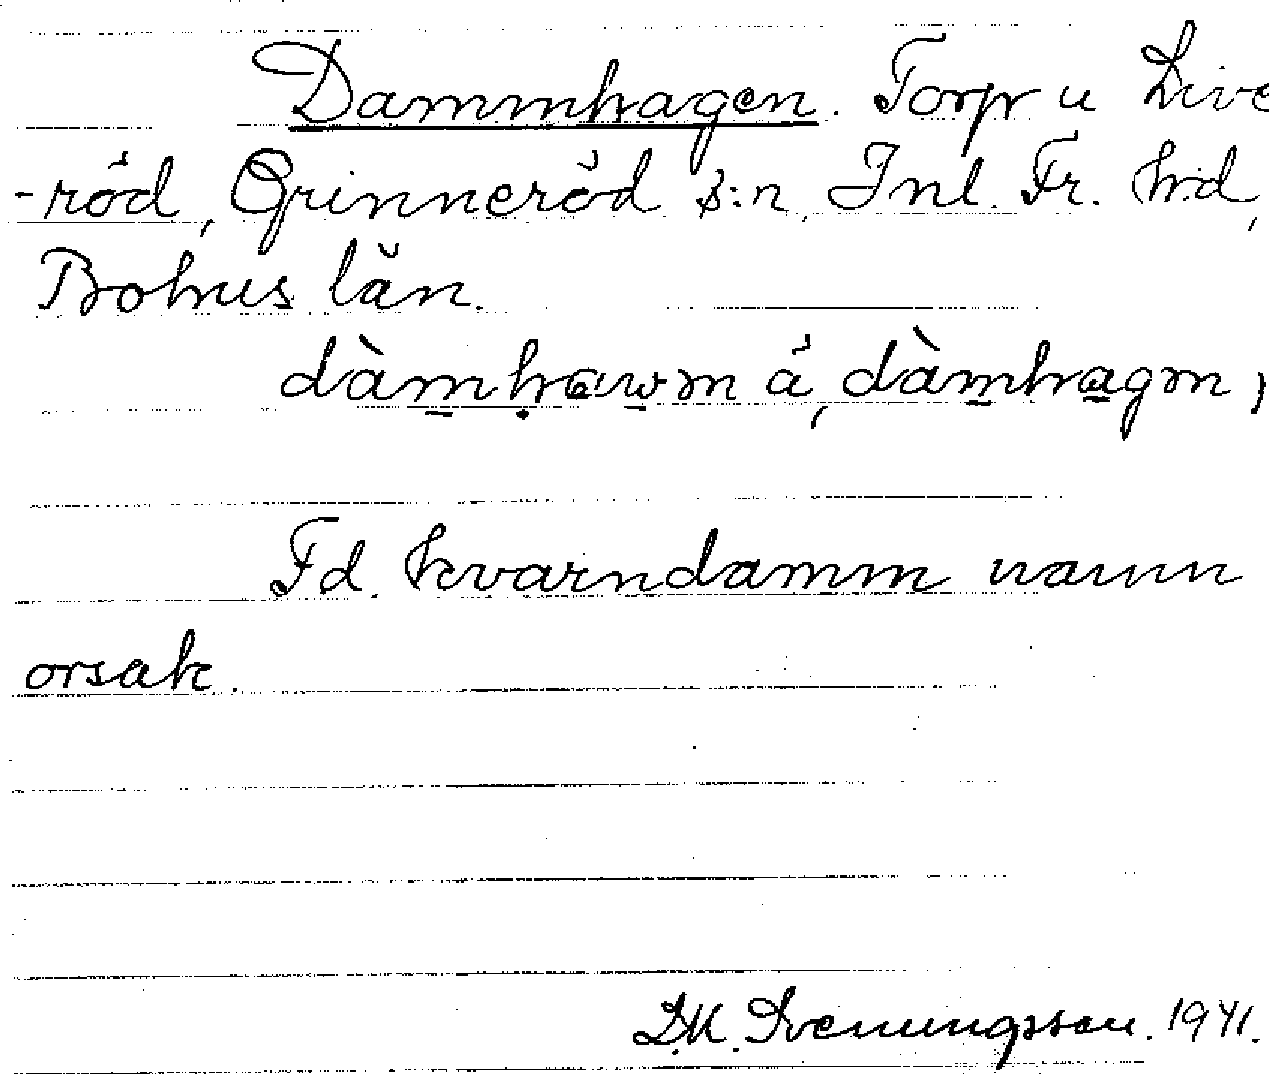 Dammhagen. Torp u Live
-röd, Grinneröd s:n, Inl. Fr. hd,
Bohus län.
dàmhawən å, dàmhagən,
Fd. kvarndamm namn
orsak.
D.K. Svenungsson. 1941.